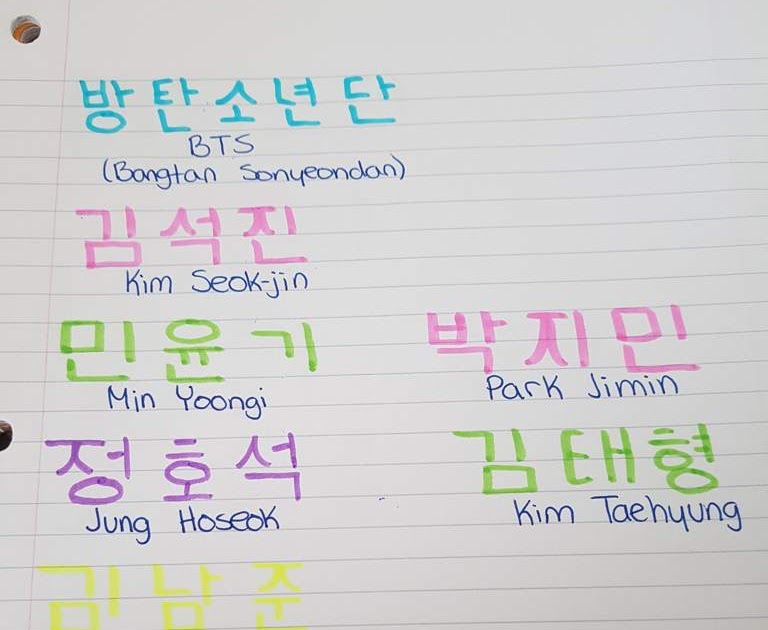 방탄소년단
BTS
(Bangtan Sonyeondan)
김석진
Kim Seok-jin
민윤기 박지민
Min Yoongi Park Jimin
정호석 김태형
Jung Hoseok Kim Taehyung
김남준